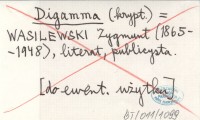 Digamma (krypt.) =
WASILEWSKI Zygmunt (1865-
-1948), literat, publicysta.
[do ewent. użytku]
BJ/OM/1099